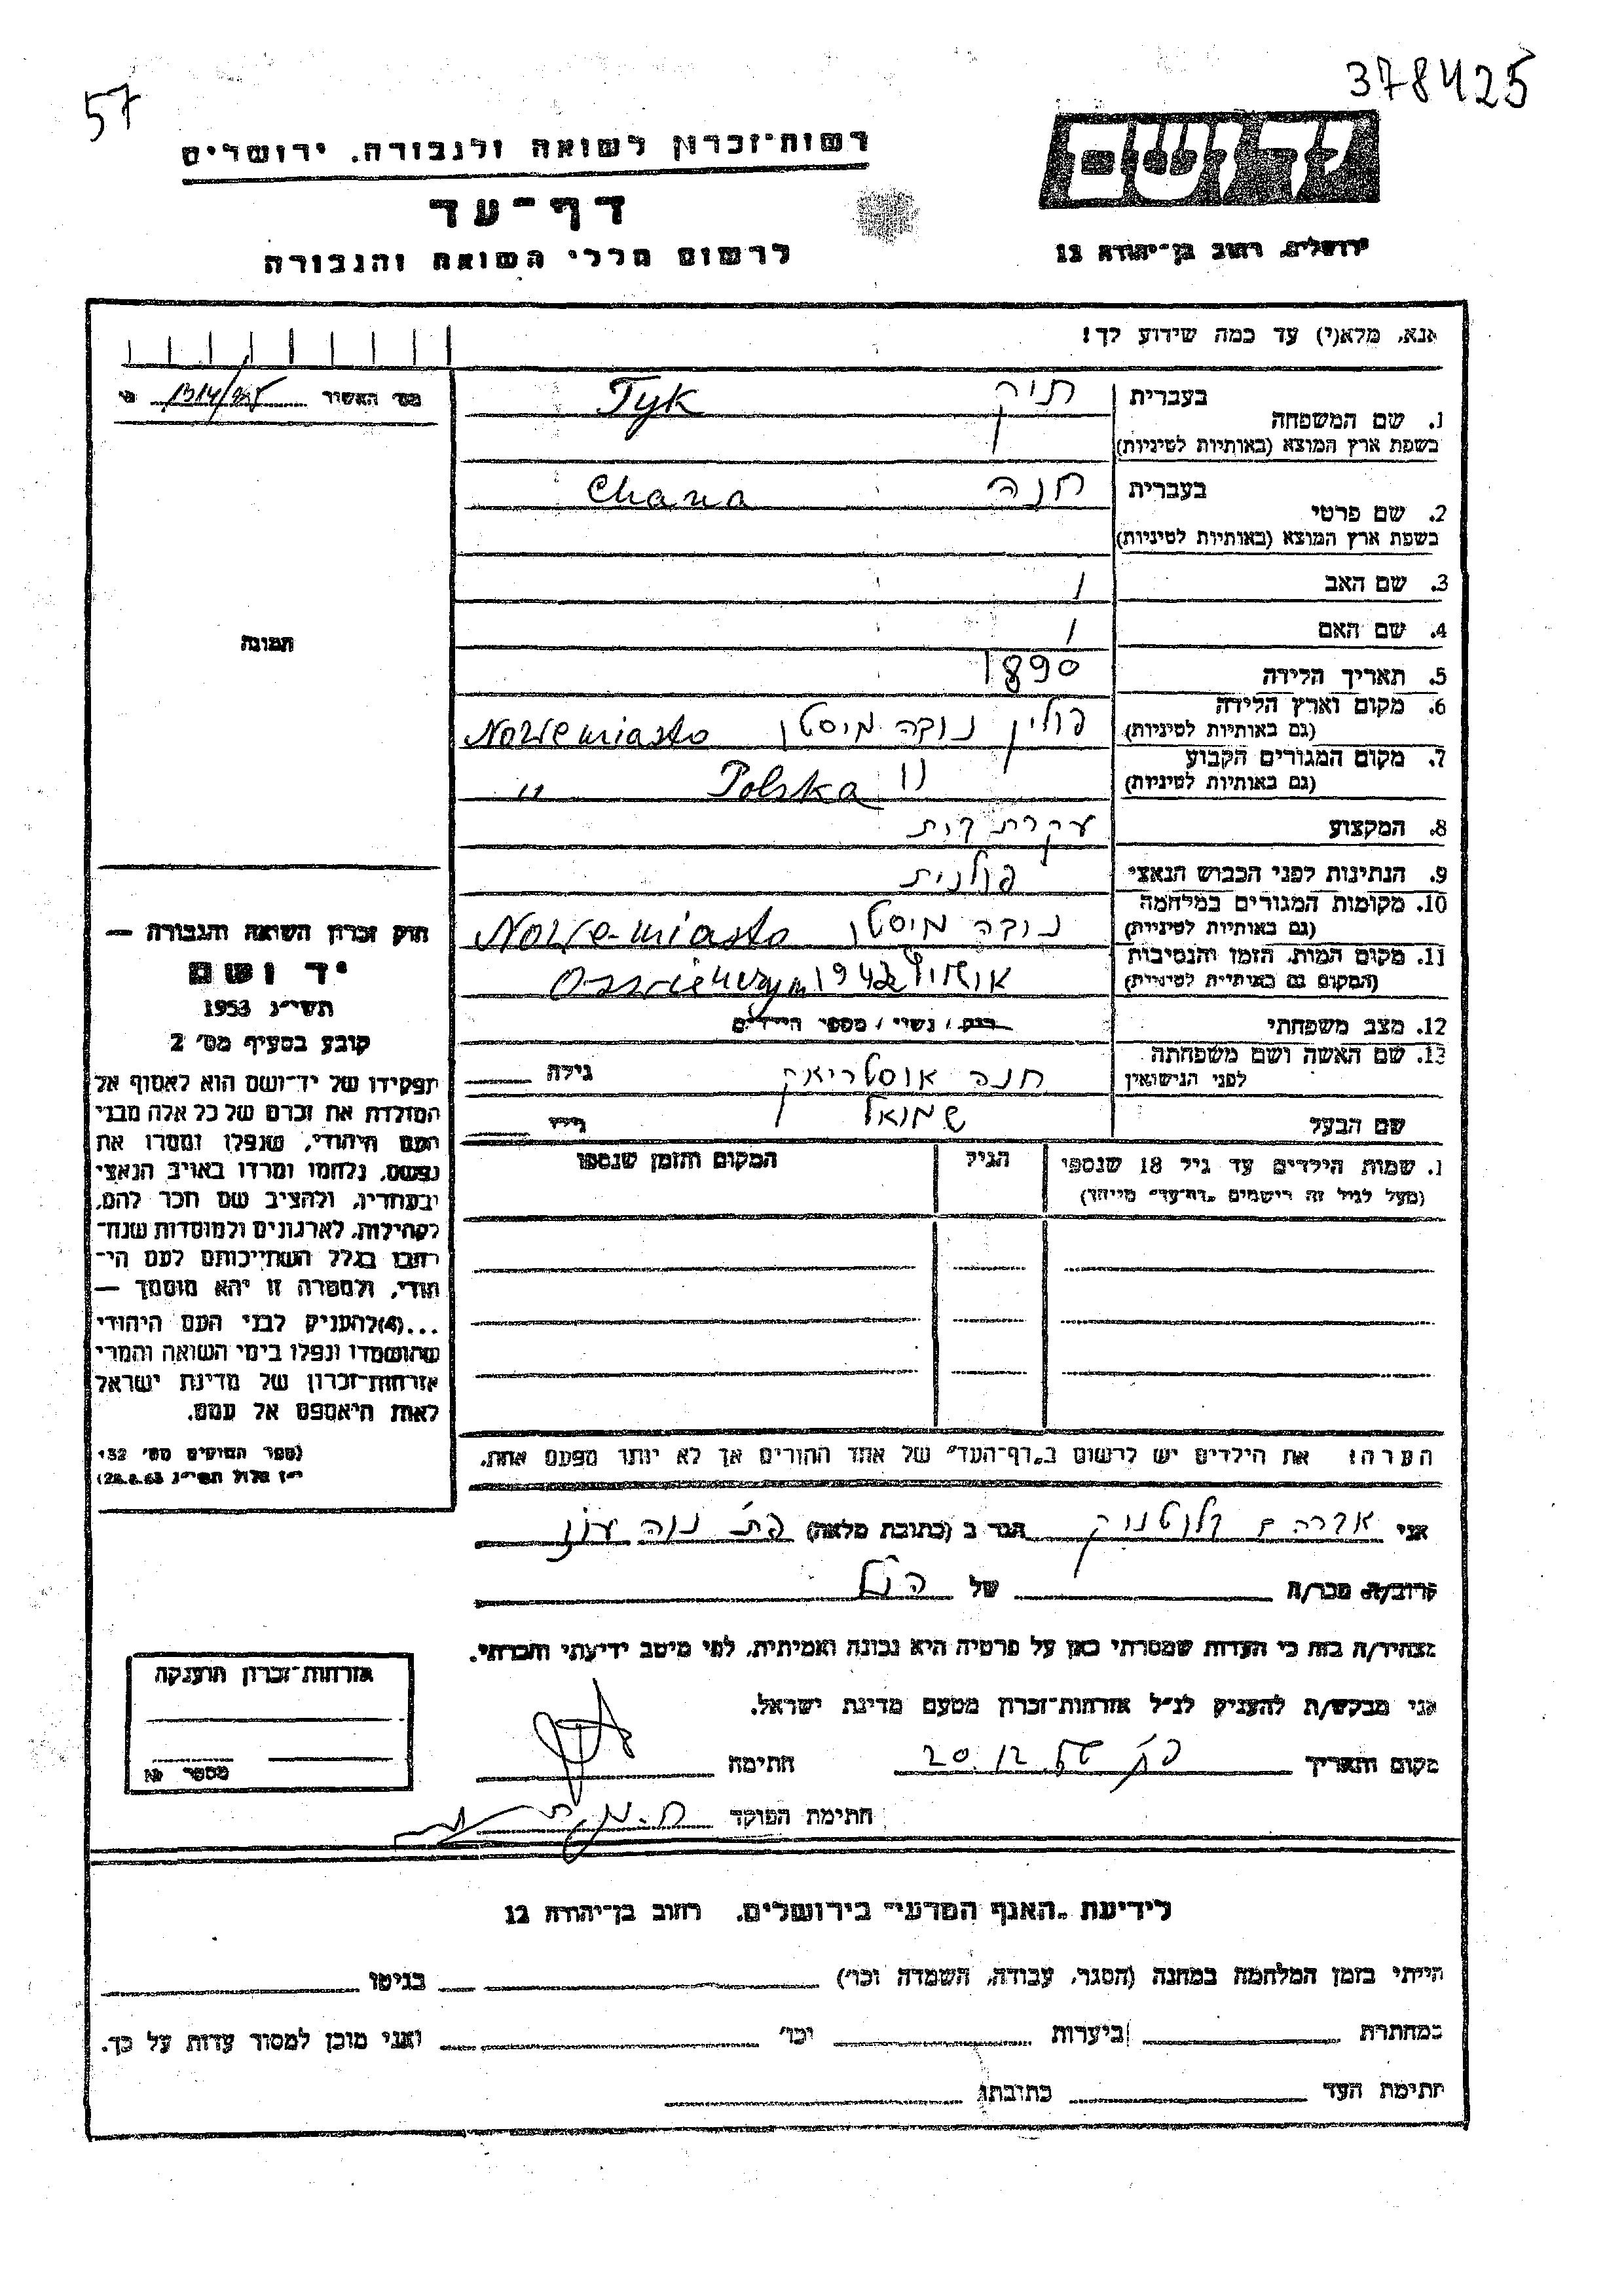 378425
57
יד ושם
רשות־זכרון לשואה ולגבורה, ירושלים
דף־עד
לרשום חללי השואה והגבורה
ירושלים, רחוב בן־יהודה 12
אנא, מלא(י) עד כמה שידוע לך!
מס׳ האשור
בעברית תיק Tyk
1. שם המשפחה
בשפת ארץ המוצא (באותיות לטיניות)
בעברית חנה Chana
2. שם פרטי
בשפת ארץ המוצא (באותיות לטיניות)
3. שם האב /
4. שם האם /
5. תאריך הלידה 1890
6. מקום וארץ הלידה פולין נובה מיסטו Nowe miasto
(גם באותיות לטיניות)
7. מקום המגורים הקבוע " Polska "
(גם באותיות לטיניות)
8. המקצוע עקרת בית
9. הנתינות לפני הכבוש הנאצי פולנית
10. מקומות המגורים במלחמה נובה מיסטו Nowe-miasto
(גם באותיות לטיניות)
11. מקום המות, הזמן והנסיבות אושויץ 1942
(המקום גם באותיות לטיניות)
12. מצב משפחתי רווק / נשוי / מספר הילדים
13. שם האשה ושם משפחתה חנה גילה
לפני הנישואין
שם הבעל שמואל גילו
תמונה
חוק זכרון השואה והגבורה —
יד ושם
תשי״ג 1953
קובע בסעיף מס׳ 2
תפקידו של יד־ושם הוא לאסוף אל
המולדת את זכרם של כל אלה מבני
העם היהודי, שנפלו ומסרו את
נפשם, נלחמו ומרדו באויב הנאצי
ובעוזריו, ולהציב שם וזכר להם,
לקהילות, לארגונים ולמוסדות שנח־
רבו בגלל השתייכותם לעם הי־
הודי, ולמטרה זו יהא מוסמך —
...(4)להעניק לבני העם היהודי
שהושמדו ונפלו בימי השואה והמרי
אזרחות־זכרון של מדינת ישראל
לאות היאספם אל עמם.
(ספר החוקים מס׳ 132
י״ז אלול תשי״ג 28.8.53)
1. שמות הילדים עד גיל 18 שנספו הגיל המקום והזמן שנספו
(מעל לגיל זה רישמים „דף־עד״ מייחד)
הערה: את הילדים יש לרשום ב„דף־העד״ של אחד ההורים אך לא יותר מפעם אחת.
אני אברהם הגר ב (כתובת מלאה) פ״ת נוה עוז
קרוב/ה מכר/ה של הנ״ל
מצהיר/ה בזה כי העדות שמסרתי כאן על פרטיה היא נכונה ואמיתית, לפי מיטב ידיעתי והכרתי.
אני מבקש/ת להעניק לנ״ל אזרחות־זכרון מטעם מדינת ישראל.
מקום ותאריך פ״ת 20.12.56 חתימה
חתימת הפוקד
אזרחות־זכרון הוענקה
מספר №
לידיעת „האגף המדעי״ בירושלים, רחוב בן־יהודה 12
הייתי בזמן המלחמה במחנה (הסגר, עבודה, השמדה וכו׳) בגיטו
במחתרת ביערות וכו׳ ואני מוכן למסור עדות על כך.
חתימת העד כתובתו